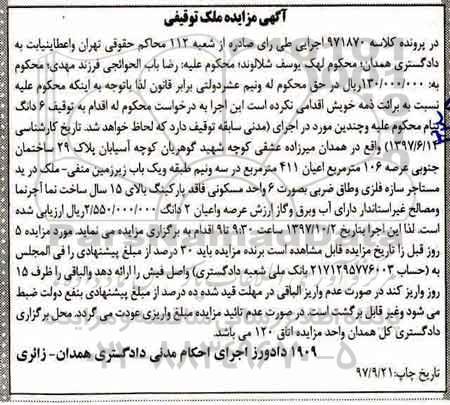 آگهی مزایده ملک توقیفی
در پرونده کلاسه ۹۷۱۸۷۰ اجرایی طی رای صادره از شعبه ۱۱۲ محاکم حقوقی تهران واعطاینیابت به
دادگستری همدان؛ محکوم لهک یوسف شلالوند؛ محکوم علیه: رضا باب الحوائجی فرزند مهدی؛ محکوم
به: ۱۳۰/۰۰۰/۰۰۰ریال در حق محکوم له ونیم عشردولتی برابر قانون لذا باتوجه به اینکه محکوم علیه
نسبت به برائت ذمه خویش اقدامی نکرده است این اجرا به درخواست محکوم له اقدام به توقیف ۶ دانگ
بنام محکوم علیه وچندین مورد در اجرای (مدنی سابقه توقیف دارد که لحاظ خواهد شد. تاریخ کارشناسی
۱۳۹۷/۶/۱۲) واقع در همدان میرزاده عشقی کوچه شهید گوهریان کوچه آسیابان پلاک ۲۹ ساختمان
جنوبی عرصه ۱۰۶ مترمربع اعیان ۴۱۱ مترمربع در سه ونیم طبقه ویک باب زیرزمین منفی- ملک در ید
مستاجر سازه فلزی وطاق ضربی بصورت ۶ واحد مسکونی فاقد پارکینگ بالای ۱۵ سال ساخت نما آجرنما
ومصالح غیراستاندار دارای آب وبرق وگاز ارزش عرصه واعیان ۲ دانگ ۲/۵۵۰/۰۰۰/۰۰۰ریال ارزیابی شده
است. لذا این اجرا بتاریخ ۱۳۹۷/۱۰/۲ ساعت ۹:۳۰ تا۹ اقدام به برگزاری مزایده می نماید مورد مزایده ۵
روز قبل زا تاریخ مزایده قابل مشاهده است برنده مزایده باید ۳۰ درصد از مبلغ پیشنهادی را فی المجلس
به (حساب ۲۱۷۱۲۹۵۷۷۶۰۰۳ بانک ملی شعبه دادگستری) واصل فیش را ارائه دهد والباقی را ظرف ۱۵
روز واریز کند در صورت عدم واریز الباقی در مهلت قید شده ده درصد از مبلغ پیشنهادی بنفع دولت ضبط
می شود وغیر قابل برگشت است. در صورت عدم تائید مزایده مبلغ واریزی عودت می گردد. محل برگزاری
دادگستری کل همدان واحد مزایده اتاق ۱۲۰ می باشد.
۱۹۰۹ دادورز اجرای احکام مدنی دادگستری همدان- زائری
تاریخ چاپ: ۹۷/۹/۲۱
۰۲۱-۸۸۳۴۹۶۷۰-۵